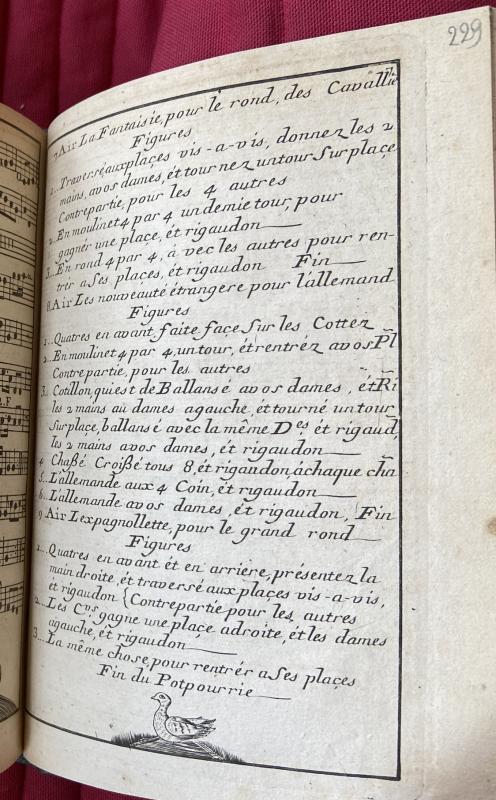 229
7 Air La Fantaisie, pour le rond, des Cavall.rs
Figures
1.. Traversé aux places vis-a-vis, donnez les 2
mains, a vos dames, ét tournez un tour Sur place
Contrepartie, pour les 4 autres
2.. En moulinet 4 par 4 un demie tour, pour
gagnér une place, ét rigaudon
3.. En rond 4 par 4, à vec les autres pour ren-
trér a Ses places, ét rigaudon Fin
8 Air Les nouveauté étrangere pour l'allemand
Figures
1.. Quatres en avant faite façe Sur les Cottez
2.. En moulinet 4 par 4, un tour, ét rentréz a vos Pl
Contrepartie, pour les autres
3.. Cotillon, qui est de Ballansé a vos dames, ét Ri
les 2 mains aù dames agauche, ét tourné un tour
Sur plaçe, ballansé avec la même D.es ét rigaud,
les 2 mains a vos dames, ét rigaudon
4 Chaßé Croißé tous 8, ét rigaudon, àchaque cha
5.. L'allemande aux 4 Coin, ét rigaudon
6.. L'allemande a vos dames, ét rigaudon, Fin
9 Air L'expagnollette, pour le grand rond
Figures
1... Quatres en avant ét en arriére, présentez la
main droite, ét traversé aux plaçes vis-a-vis,
ét rigaudon {Contrepartie pour les autres
2... Les C.rs gagne une plaçe adroite, ét les dames
agauche, ét rigaudon
3... La même chose, pour rentrér a Ses plaçes
Fin du Potpourrie